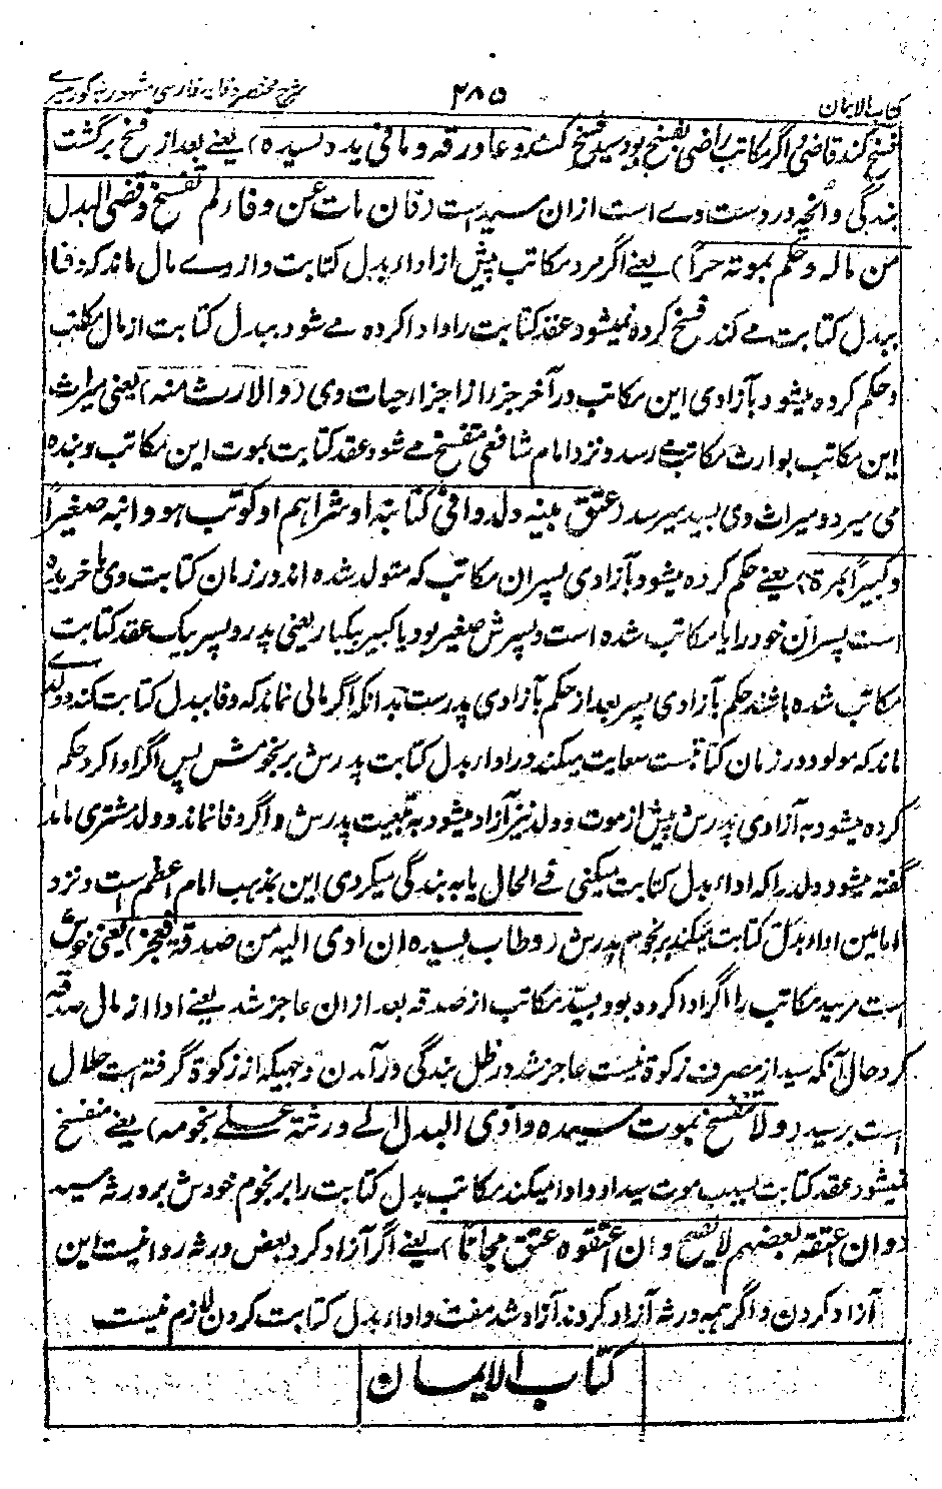 کتاب الایمان
۲۸۵
شرح مختصر وقایه فارسی مشهور به کورمیرے
فسخ کند قاضی و اگر مکاتب راضی بفسخ بود سید فسخ کند (وعاد رقه وما فی یده لسیده) یعنے بعد از فسخ برگشت
بندگی و آنچه در دست وے است از ان سید است (فان مات عن وفاء لم تفسخ وقضی البدل
من ماله وحکم بموته حراً) یعنے اگر مرد مکاتب پیش از اداء بدل کتابت و از وے مال ماند که وفا
ببدل کتابت مے کند فسخ کرده نمیشود عقد کتابت را و ادا کرده مے شود ببدل کتابت از مال مکاتب
و حکم کرده میشود بآزادی این مکاتب در آخر جزء از اجزاء حیات وی (والارث منه) یعنی میراث
این مکاتب بوارث مکاتب مے رسد و نزد امام شافعی منفسخ مے شود عقد کتابت بموت این مکاتب و بنده
می میرد و میراث وی بسید میرسد (وعتق بنیه ولدوا فی کتابته او شراهم او کوتب هو وابنه صغیراً
وکبیراً بمرة) یعنے حکم کرده میشود بآزادی پسران مکاتب که متولد شده اند در زمان کتابت وی یا خریده
است پسران خود را یا مکاتب شده است و پسرش صغیر بود یا کبیر بیکبار یعنی پدر و پسر بیک عقد کتابت
مکاتب شده باشند حکم بآزادی پسر بعد از حکم بآزادی پدر ست بدانکه اگر مالی نماند که وفا ببدل کتابت کند و ولدے
ماند که مولود در زمان کتابتست سعایت میکند در اداء بدل کتابت پدرش بر نجومش پس اگر ادا کرد حکم
کرده میشود به آزادی پدرش پیش از موت و ولد نیز آزاد میشود به تبعیت پدرش و اگر وفا نماند و ولد مشتری ماند
گفته میشود ولد را که اداء بدل کتابت میکنی فے الحال یا به بندگی میگردی این بمذهب امام اعظم است و نزد
امامین اداء بدل کتابت میکند بر نجوم پدرش (وطاب لسیده ان ادی الیه من صدقة فعجز) یعنی خوش
است مر سید مکاتب را اگر ادا کرده بود بسید مکاتب از صدقه بعد از ان عاجز شد یعنے ادا از مال صدقه
کرد حال آنکه سید از مصرف زکوة نیست عاجز شد در ظل بندگی در آمدن وجهیکه از زکوة گرفته است حلال
است بر سید (ولا تنفسخ بموت سیده وادی البدل الے ورثته علے نجومه) یعنے منفسخ
نمیشود عقد کتابت بسبب موت سید او و ادا میکند مکاتب بدل کتابت را بر نجوم خودش بر ورثه سید
(وان اعتقه بعضهم لا یصح وان اعتقوه عتق مجانا) یعنے اگر آزاد کرد بعض ورثه روا نیست این
آزاد کردن و اگر همه ورثه آزاد کردند آزاد شد مفت و اداء بدل کتابت کردن لازم نیست
کتاب الایمان